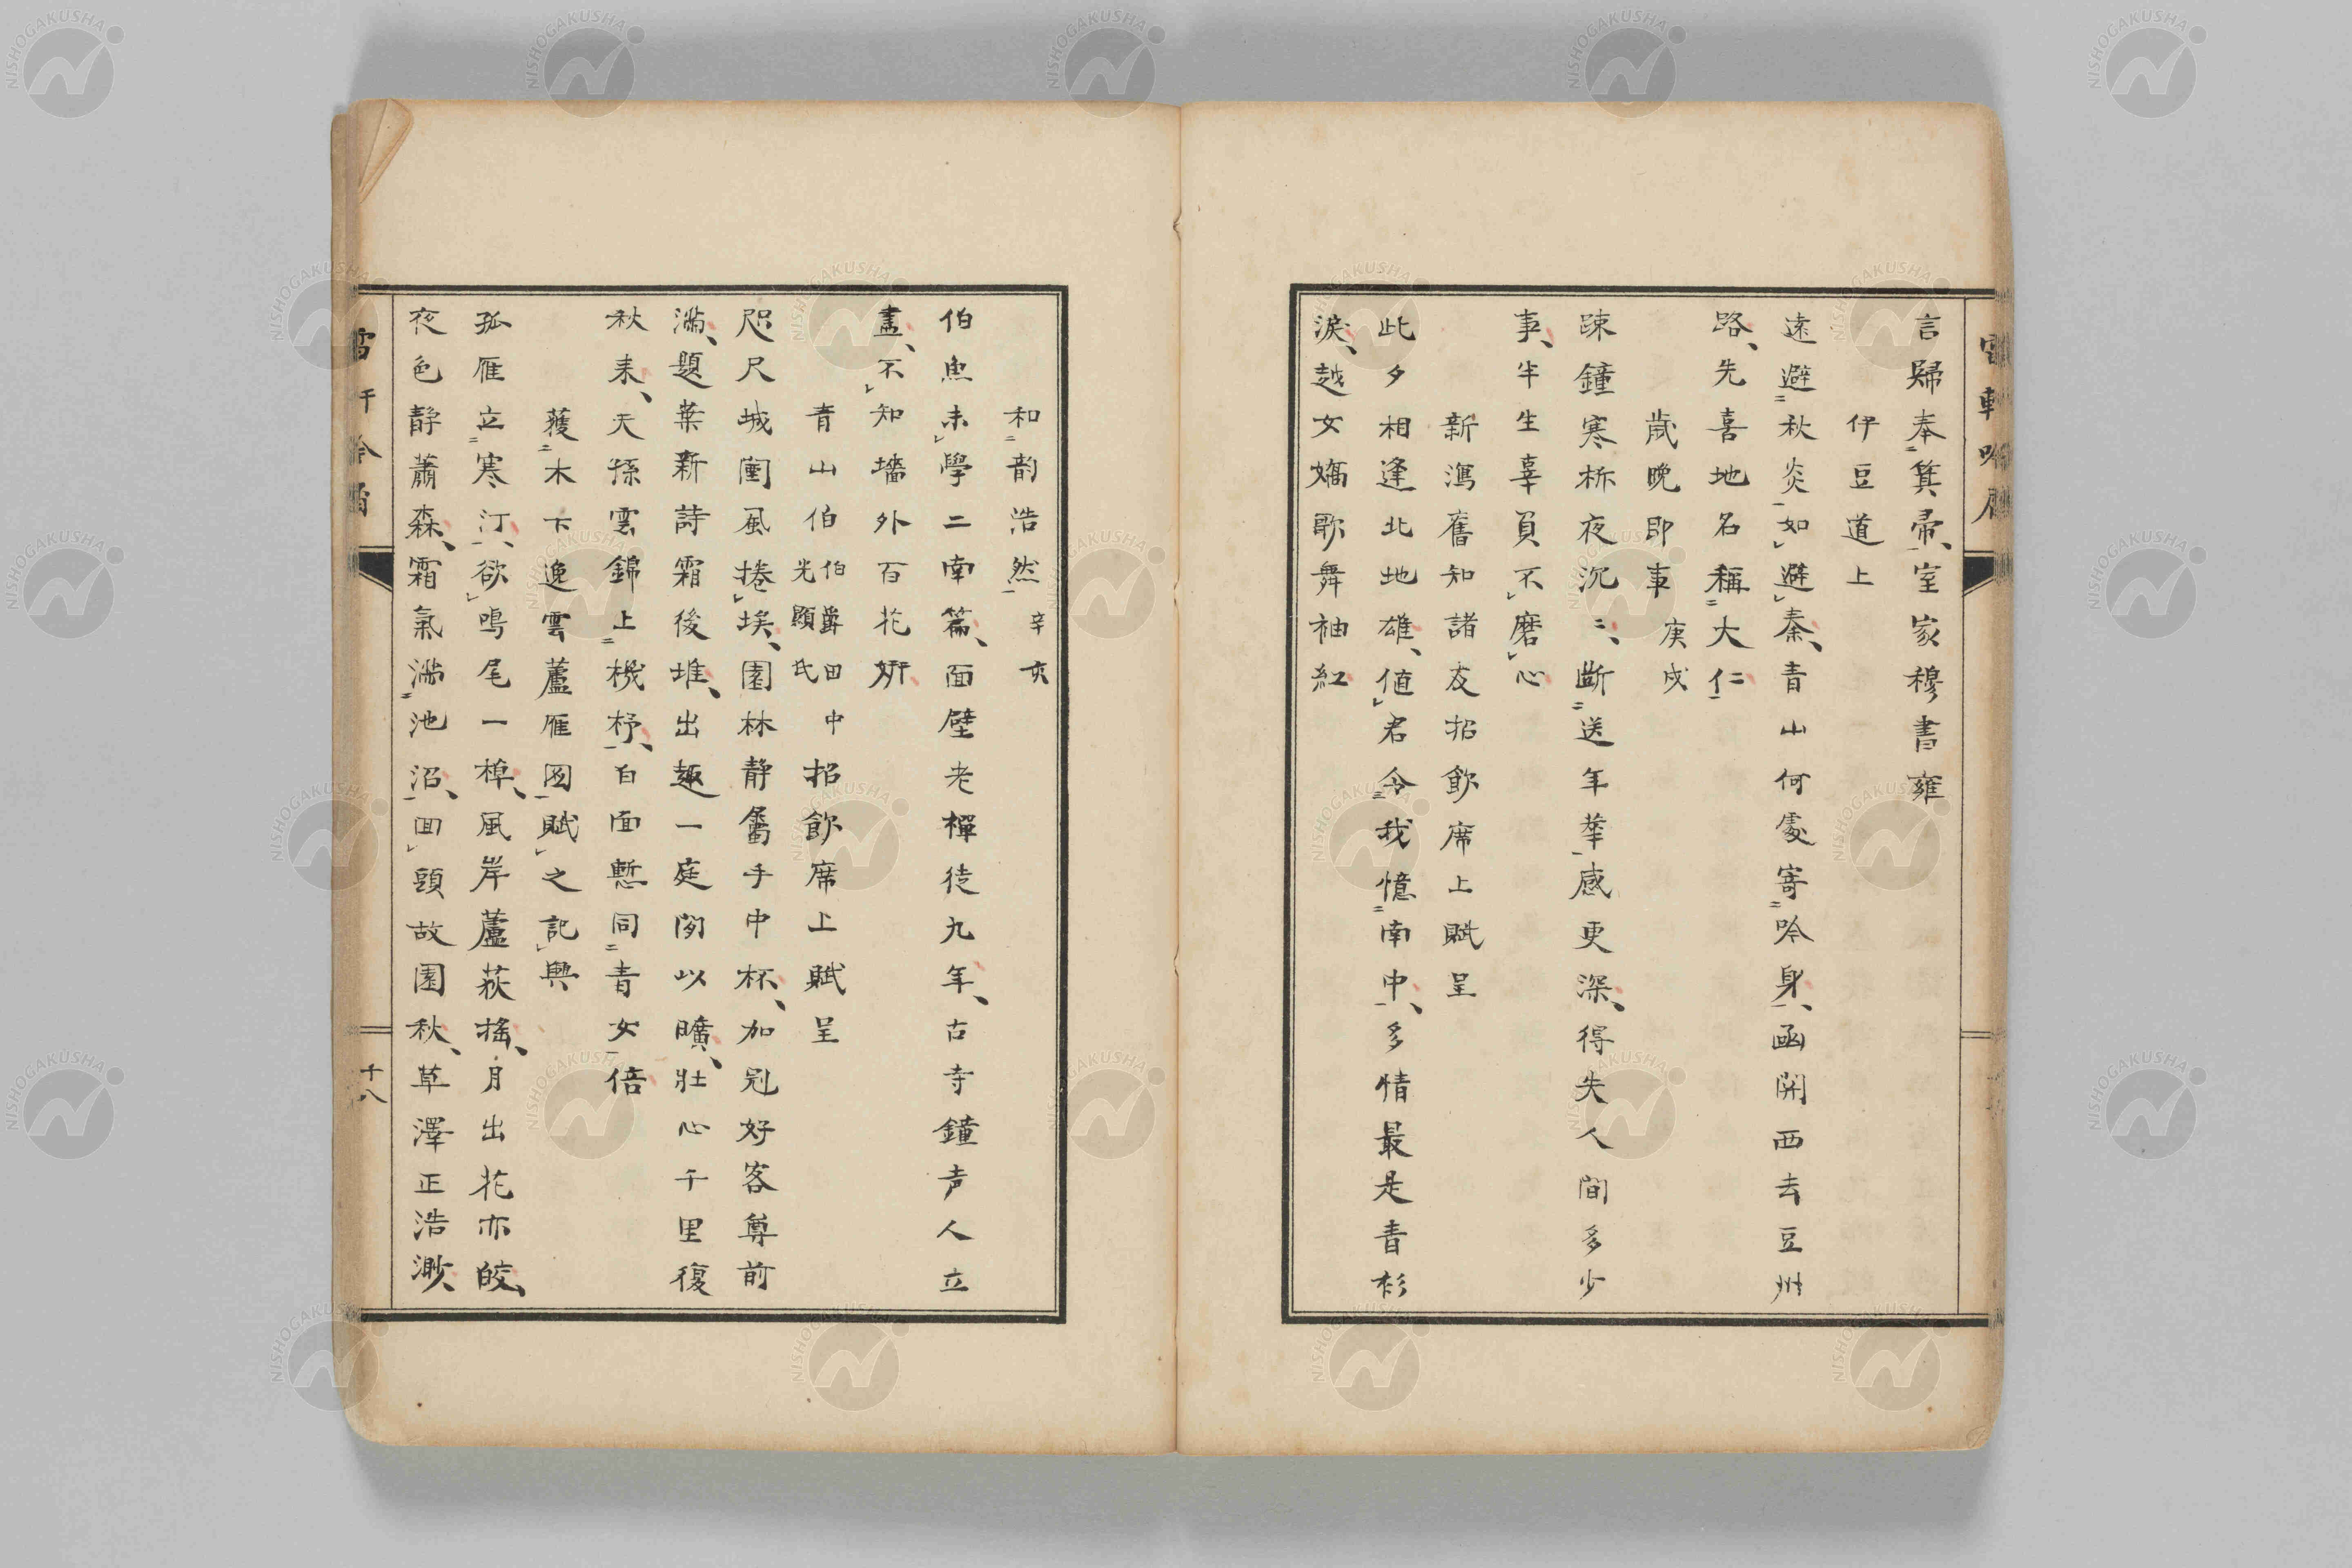 言歸奉箕帚室家穆書雍
伊豆道上
遠避秋炎如避秦青山何處寄吟身函開西去豆州
路先喜地名稱大仁
歲晚即事 庚戌
疎鐘寒柝夜沉〻断送年華感更深得失人間多少
事半生辜負不磨心
新潟舊知諸友招飲席上賦呈
此夕相逢北地雄値君令我憶南中多情最是青衫
淚越女嬌歌舞袖紅
和韵浩然 辛亥
伯魚未學二南篇面壁老禪徒九年古寺鐘声人立
盡不知墻外百花妍
青山伯 伯爵田中光顕氏 招飲席上賦呈
咫尺城闉風捲埃園林静屬手中杯加冠好客尊前
滿題葉新詩霜後堆出趣一庭閑以曠壯心千里復
秋来天孫雲錦上機杼白面慙同青女倍
獲木下逸雲蘆雁図賦之記興
孤雁立寒汀欲鳴尾一棹風岸蘆荻搖月出花亦皎
夜色静蕭森霜氣滿池沼囬頭故園秋草澤正浩渺
十八